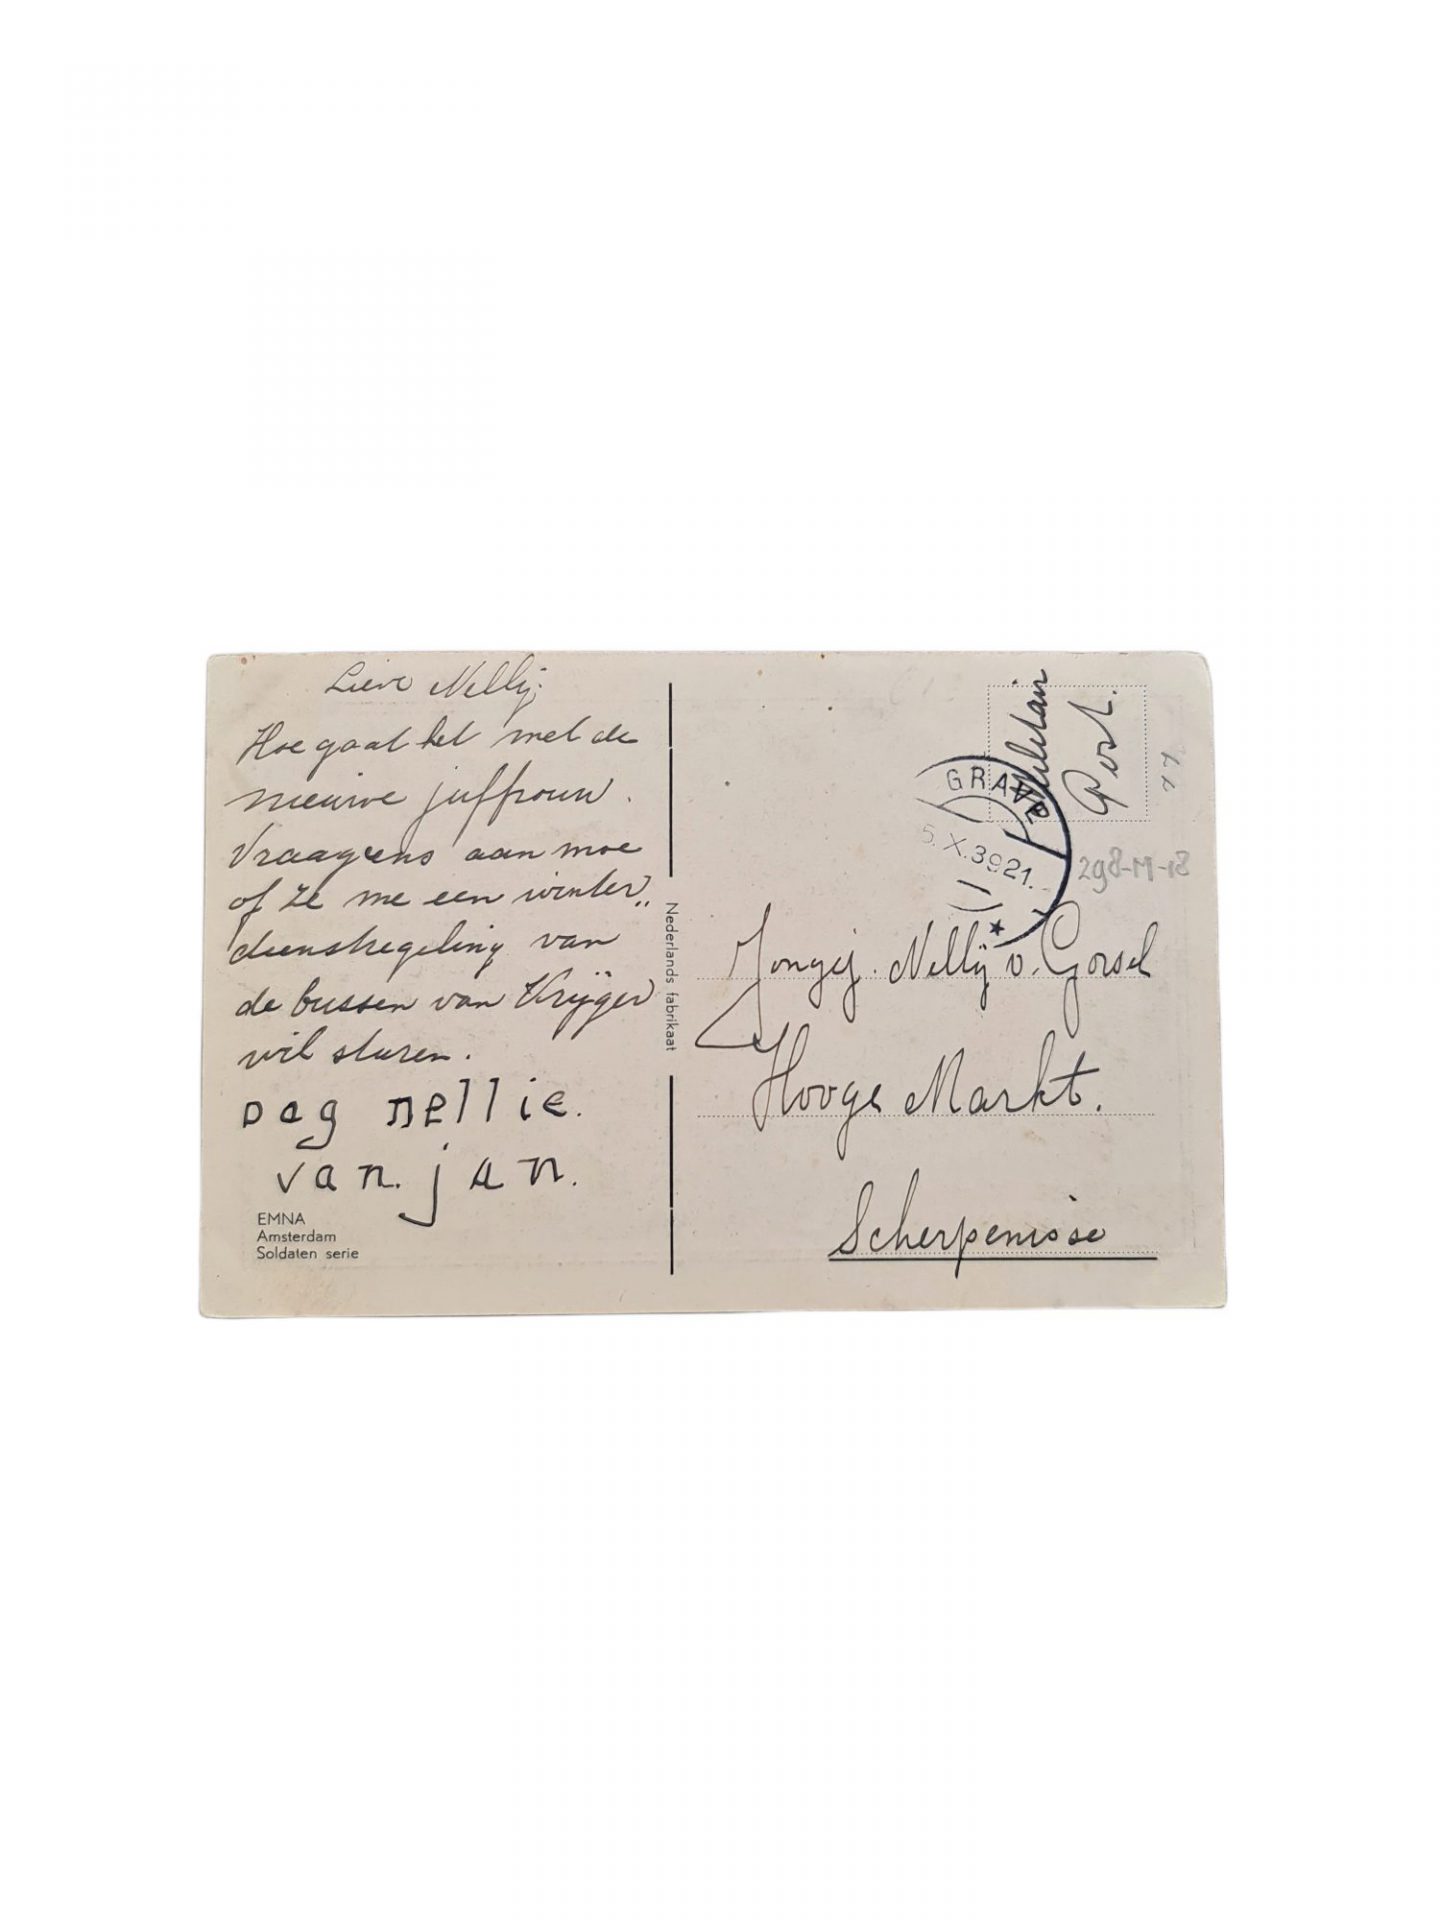 Lieve Nellij.
Hoe gaat het met de
nieuwe juffrouw.
Vraag eens aan moe
of ze me een winter„
dienstregeling van
de bussen van Krijger
wil sturen.
Dag nellie.
van. jan.
EMNA
Amsterdam
Soldaten serie
Nederlands fabrikaat
Militair
Post.
GRAVE
5.X.39 21.
298-M-18
Jongej. Nellij v. Gorsel
Hooge Markt.
Scherpenisse